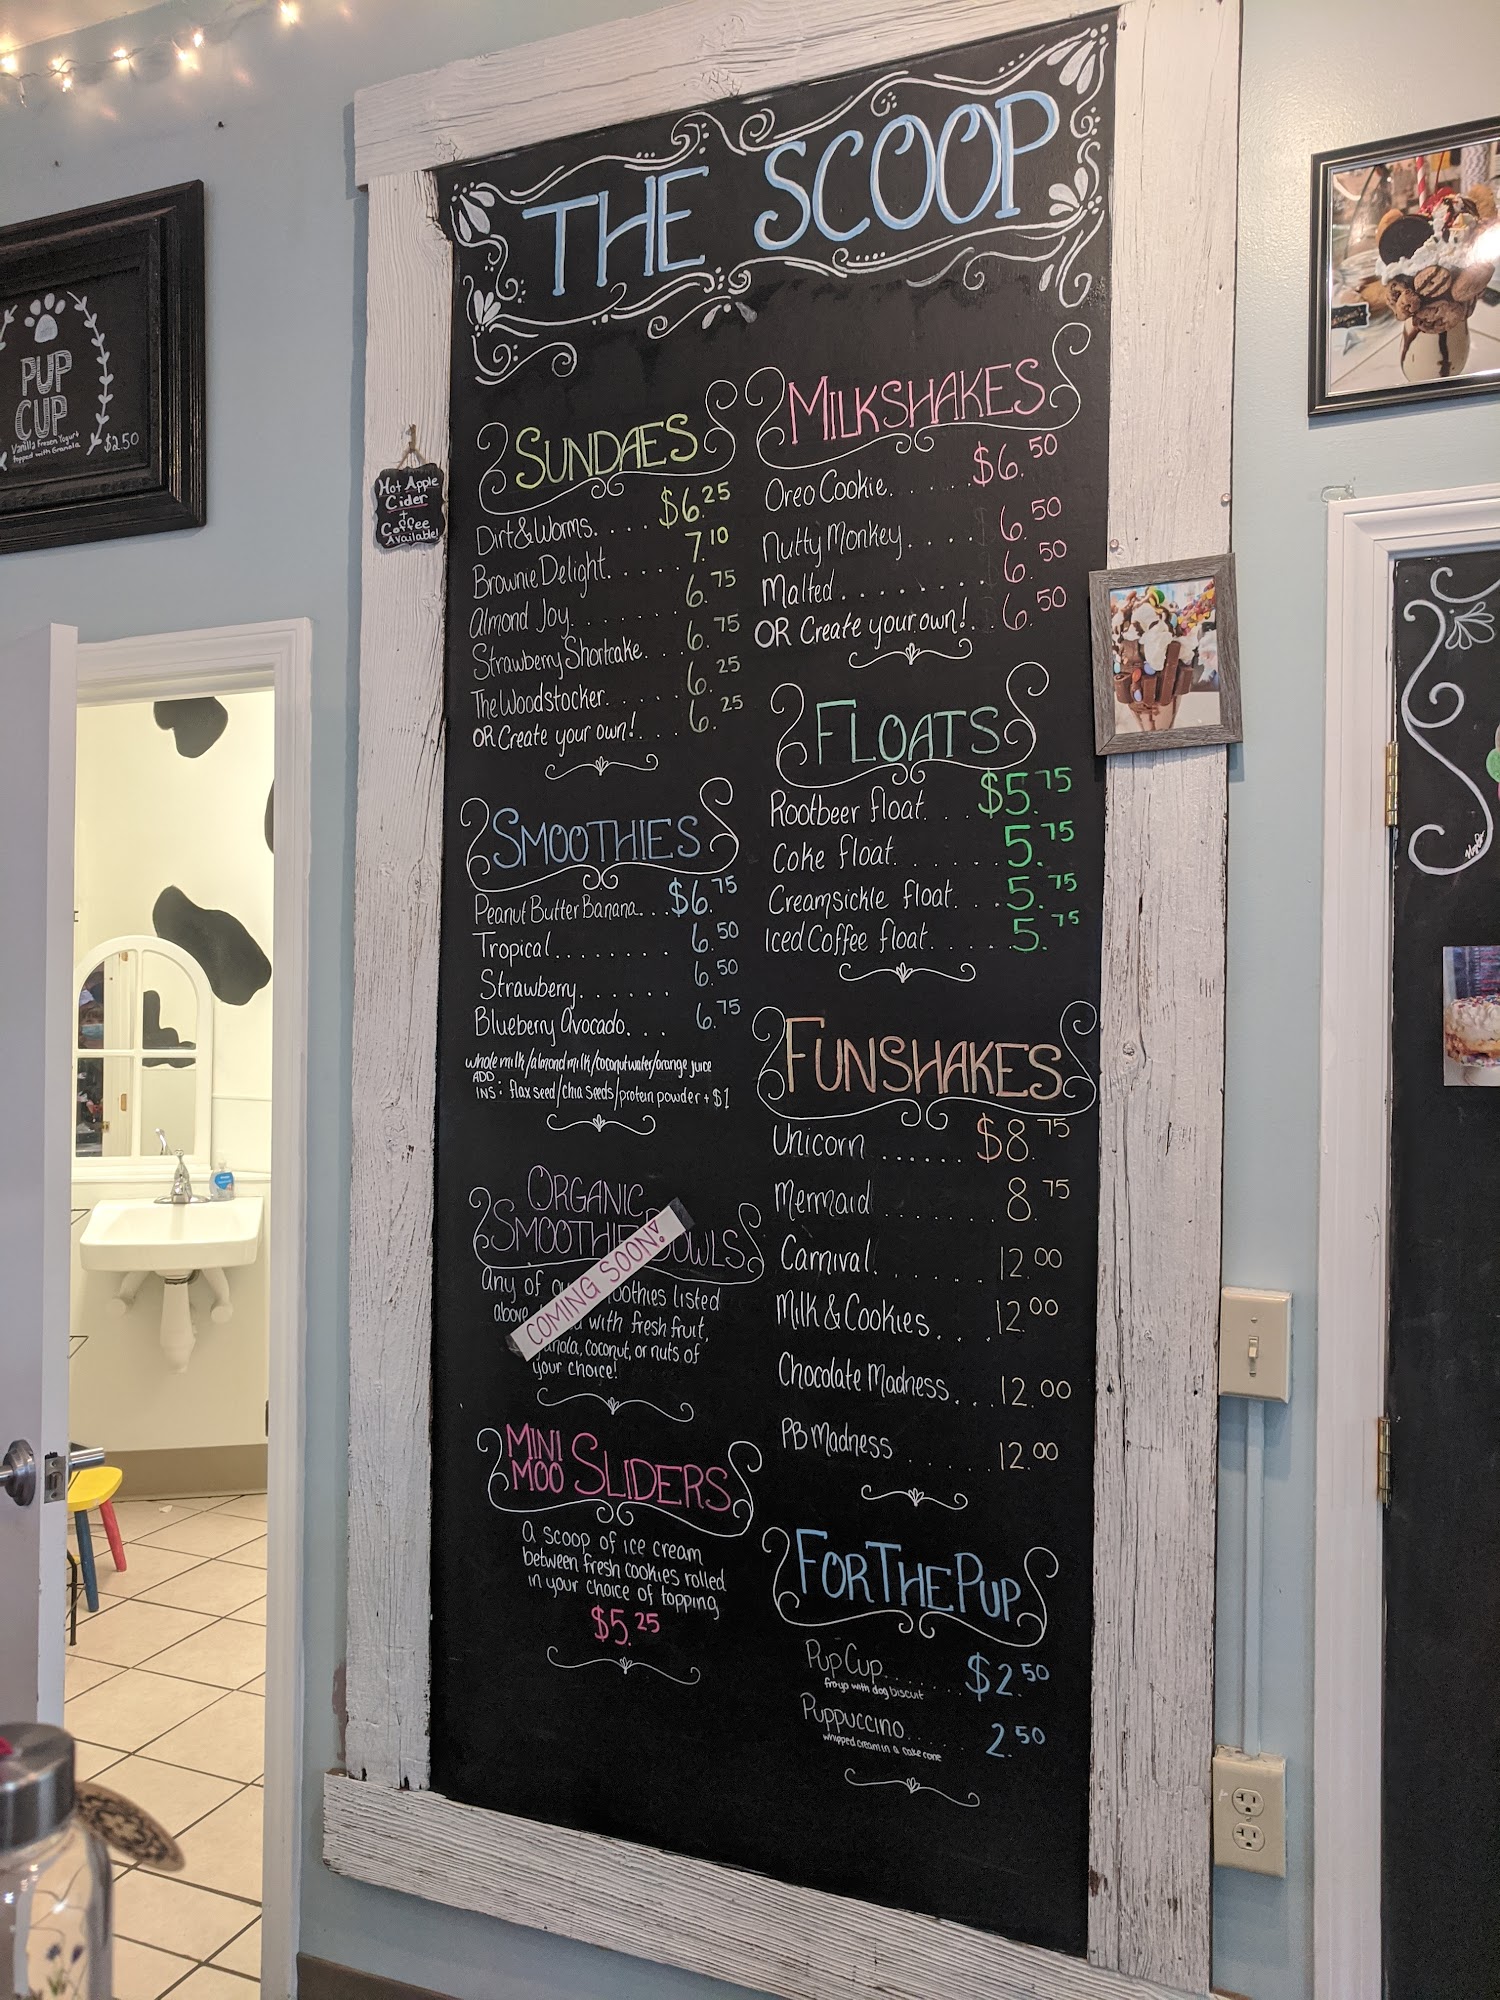 THE SCOOP
SUNDAES
Dirt&Worms..... $6.25
Brownie Delight...... 7.10
Almond Joy....... 6.75
Strawberry Shortcake... 6.75
The Woodstocker..... 6.25
OR Create your own!... 6.25
SMOOTHIES
Peanut Butter Banana... $6.75
Tropical........ 6.50
Strawberry...... 6.50
Blueberry Avocado.... 6.75
whole milk/almond milk/coconut water/orange juice
ADD
INS: flax seed/chia seeds/protein powder + $1
ORGANIC
SMOOTHIE BOWLS
COMING SOON!
any of our smoothies listed
above with fresh fruit,
granola, coconut, or nuts of
your choice!
MINI
MOO SLIDERS
a scoop of ice cream
between fresh cookies rolled
in your choice of topping
$5.25
MILKSHAKES
Oreo Cookie...... $6.50
Nutty Monkey.... 6.50
Malted........ 6.50
OR Create your own!.. 6.50
FLOATS
Rootbeer float... $5.75
Coke float...... 5.75
Creamsickle float... 5.75
Iced Coffee float..... 5.75
FUNSHAKES
Unicorn ...... $8.75
Mermaid ....... 8.75
Carnival....... 12.00
Milk & Cookies... 12.00
Chocolate Madness... 12.00
PB Madness ..... 12.00
FOR THE PUP
Pup Cup...... $2.50
froyo with dog biscuit
Puppuccino...... 2.50
whipped cream in a cake cone
PUP
CUP
Vanilla Frozen Yogurt
topped with Granola
$2.50
Hot Apple
Cider
+
Coffee
Available!